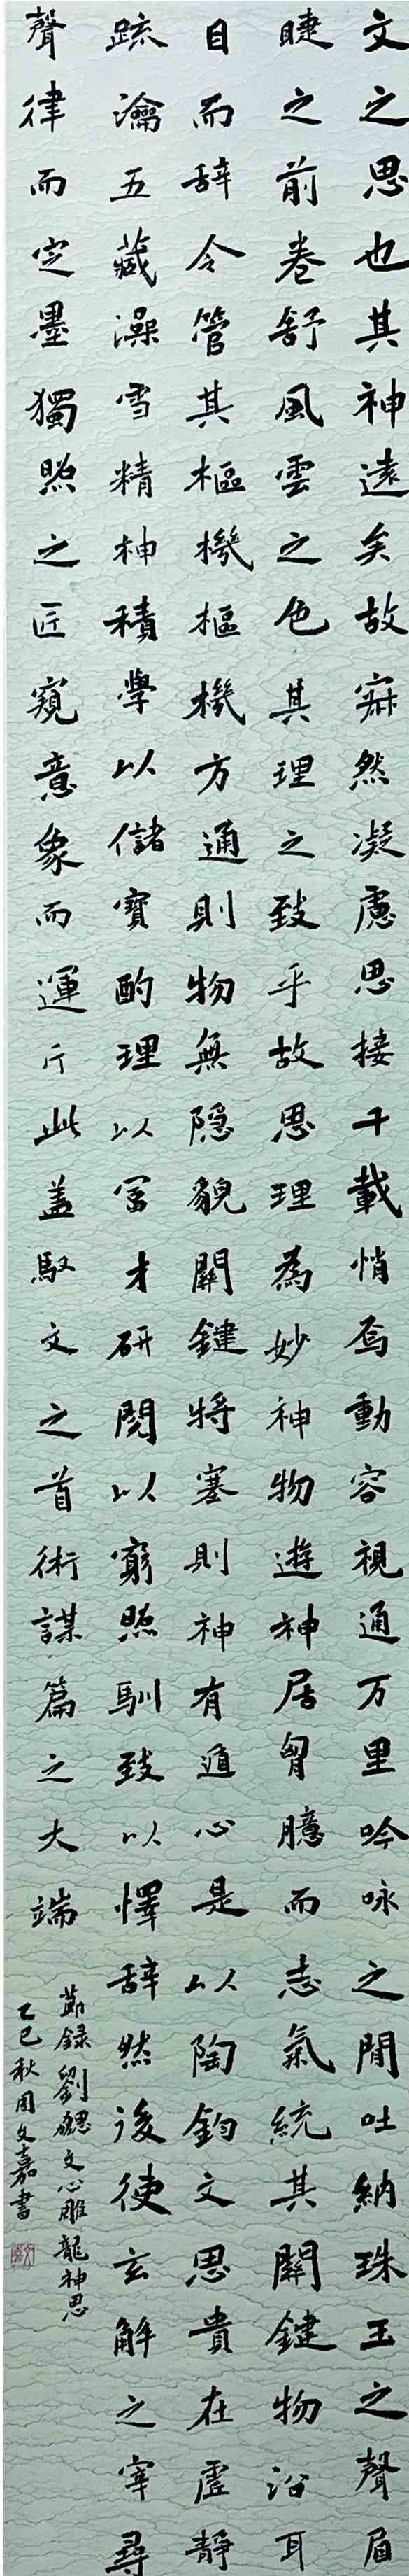 文之思也其神遠矣故寂然凝慮思接千載悄焉動容視通万里吟咏之閒吐納珠玉之聲眉
睫之前卷舒風雲之色其理之致乎故思理為妙神物遊神居胷臆而志氣統其關鍵物沿耳
目而辞令管其樞機樞機方通則物無隐貌關鍵將塞則神有遁心是以陶鈞文思貴在虛靜
疏瀹五藏澡雪精神積學以儲寶酌理以富才研閱以窮照馴致以懌辞然後使玄解之宰尋
聲律而定墨獨照之匠窺意象而運斤此盖馭文之首術謀篇之大端
節録劉勰文心雕龍神思
乙巳秋周文嘉書